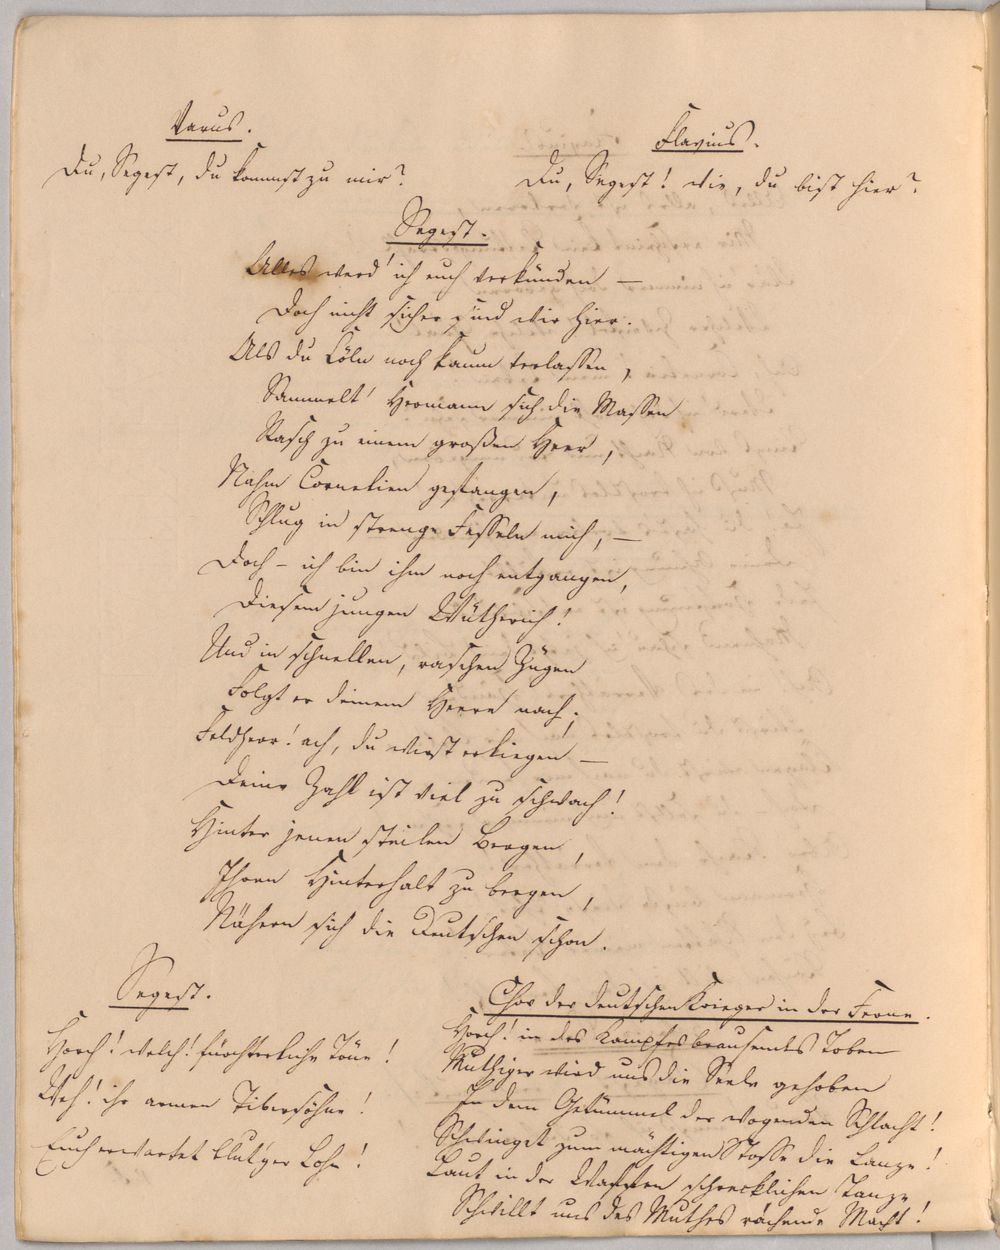 Varus.
Du, Segest, du kommst zu mir?
Flavius.
Du, Segest! wie, du bist hier?
Segest.
Alles werd' ich euch verkünden —
Doch nicht sicher sind wir hier.
Als du Cöln noch kaum verlassen,
Sammelt' Hermann sich die Massen
Rasch zu einem großen Heer,
Nahm Cornelien gefangen,
Schlug in strenge Fesseln mich, —
Doch – ich bin ihm noch entgangen,
Diesem jungen Wütherich!
Und in schnellen, raschen Zügen
Folgt er deinem Heere nach;
Feldherr! ach, du wirst erliegen —
Deine Zahl ist viel zu schwach!
Hinter jenen steilen Bergen,
Ihren Hinterhalt zu bergen,
Nähern sich die Deutschen schon.
Segest.
Horch! welch! fürchterliche Töne!
Weh! ihr armen Tibersöhne!
Euch erwartet blut'ger Lohn!
Chor der deutschen Krieger in der Ferne.
Horch! in des Kampfes brausendes Toben
Muthiger wird uns die Seele gehoben
In dem Getümmel der wogenden Schlacht!
Schwinget zum mächtigen Stosse die Lanze!
Laut in der Waffen schrecklichen Tanze
Schwillt uns des Muthes rächende Macht!